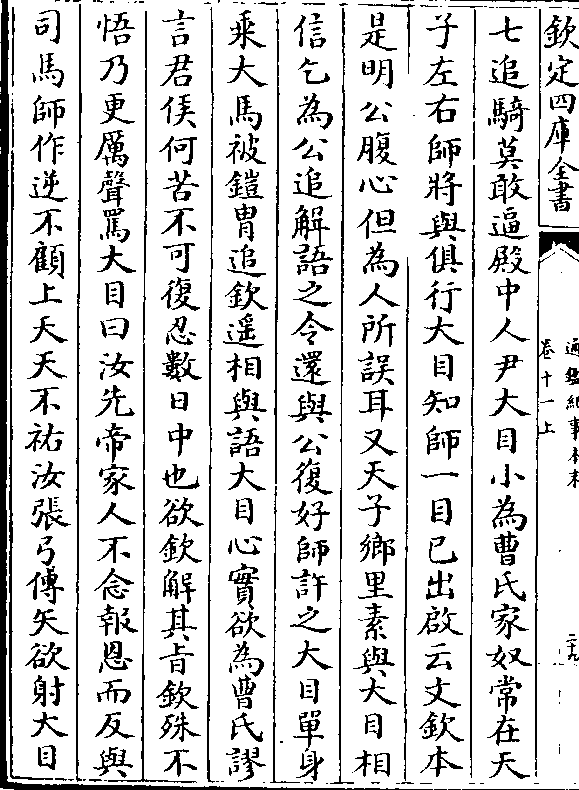 欽定四庫全書
通鑑紀事本末
卷十一上
二十九
七追騎莫敢逼殿中人尹大目小為曹氏家奴常在天
子左右師將與俱行大目知師一目已出啟云文欽本
是明公腹心但為人所誤耳又天子鄉里素與大目相
信乞為公追解語之令還與公復好師許之大目單身
乘大馬被鎧胄追欽遥相與語大目心實欲為曹氏謬
言君侯何苦不可復忍數日中也欲欽解其旨欽殊不
悟乃更厲聲罵大目曰汝先帝家人不念報恩而反與
司馬師作逆不顧上天天不祐汝張弓傅矢欲射大目